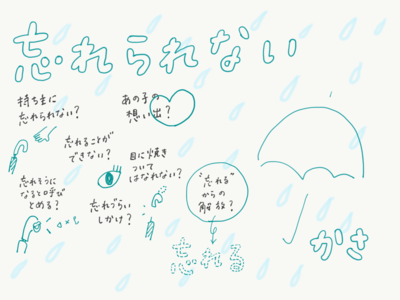 忘れられない
持ち主に
忘れられない?
あの子の
想い出?
忘れることが
できない?
目に焼き
ついて
はなれない?
忘れそうに
なると呼び
とめる?
忘れづらい
しかけ?
"忘れる"
からの
解夜?
忘れる
かさ